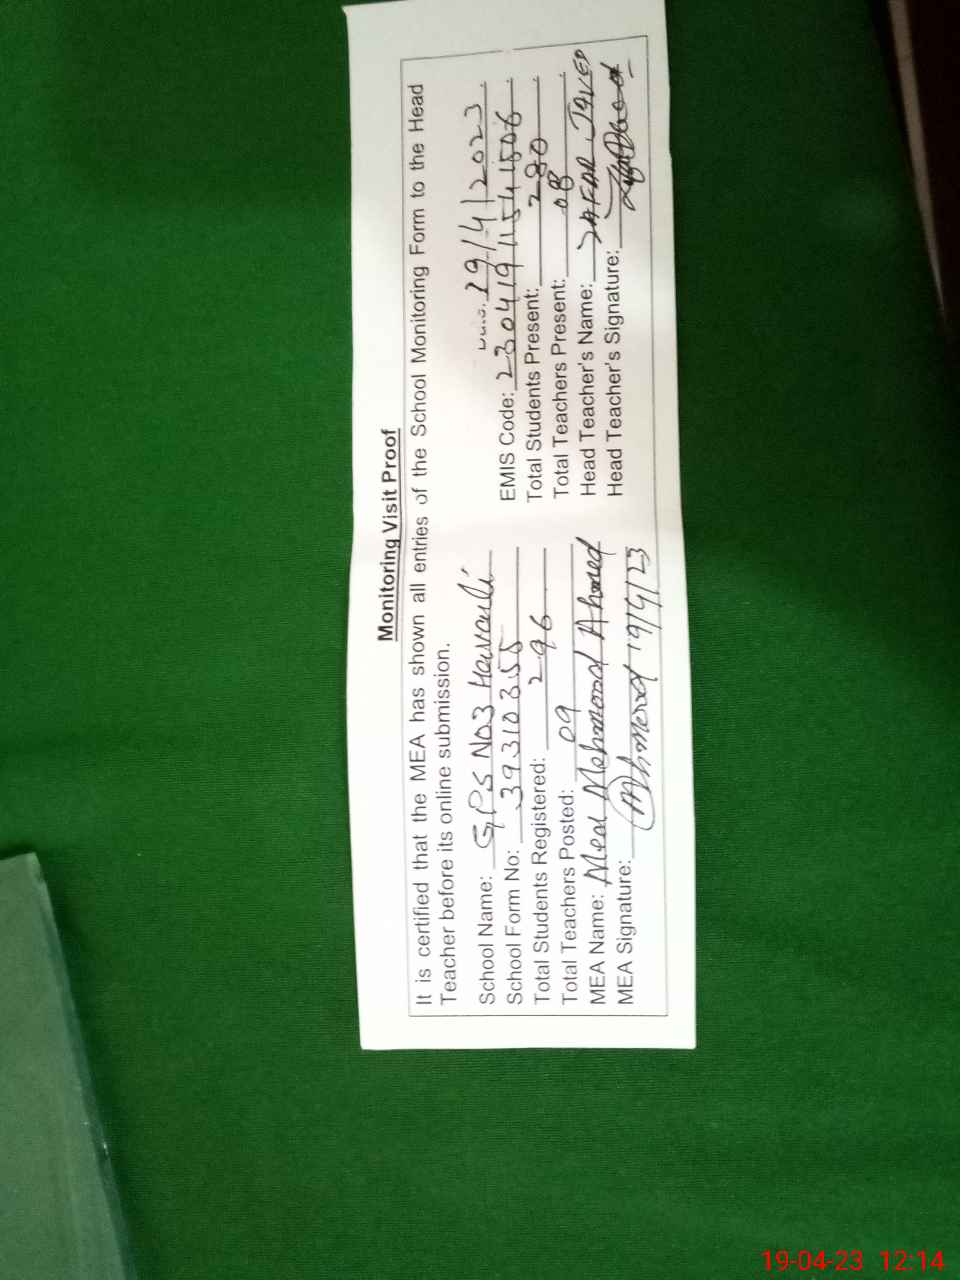 Monitoring Visit Proof
It is certified that the MEA has shown all entries of the School Monitoring Form to the Head
Teacher before its online submission.
School Name: GPS No3 Havanli
Date: 19/4/2023
School Form No: 39310355
EMIS Code:
Total Students Registered: 296
Total Students Present: 280
Total Teachers Posted: 09
Total Teachers Present: 08
MEA Name: Mehmood Ahmed
Head Teacher's Name: ZAFAR JAVED
MEA Signature: 19/4/23
Head Teacher's Signature:
19-04-23 12:14